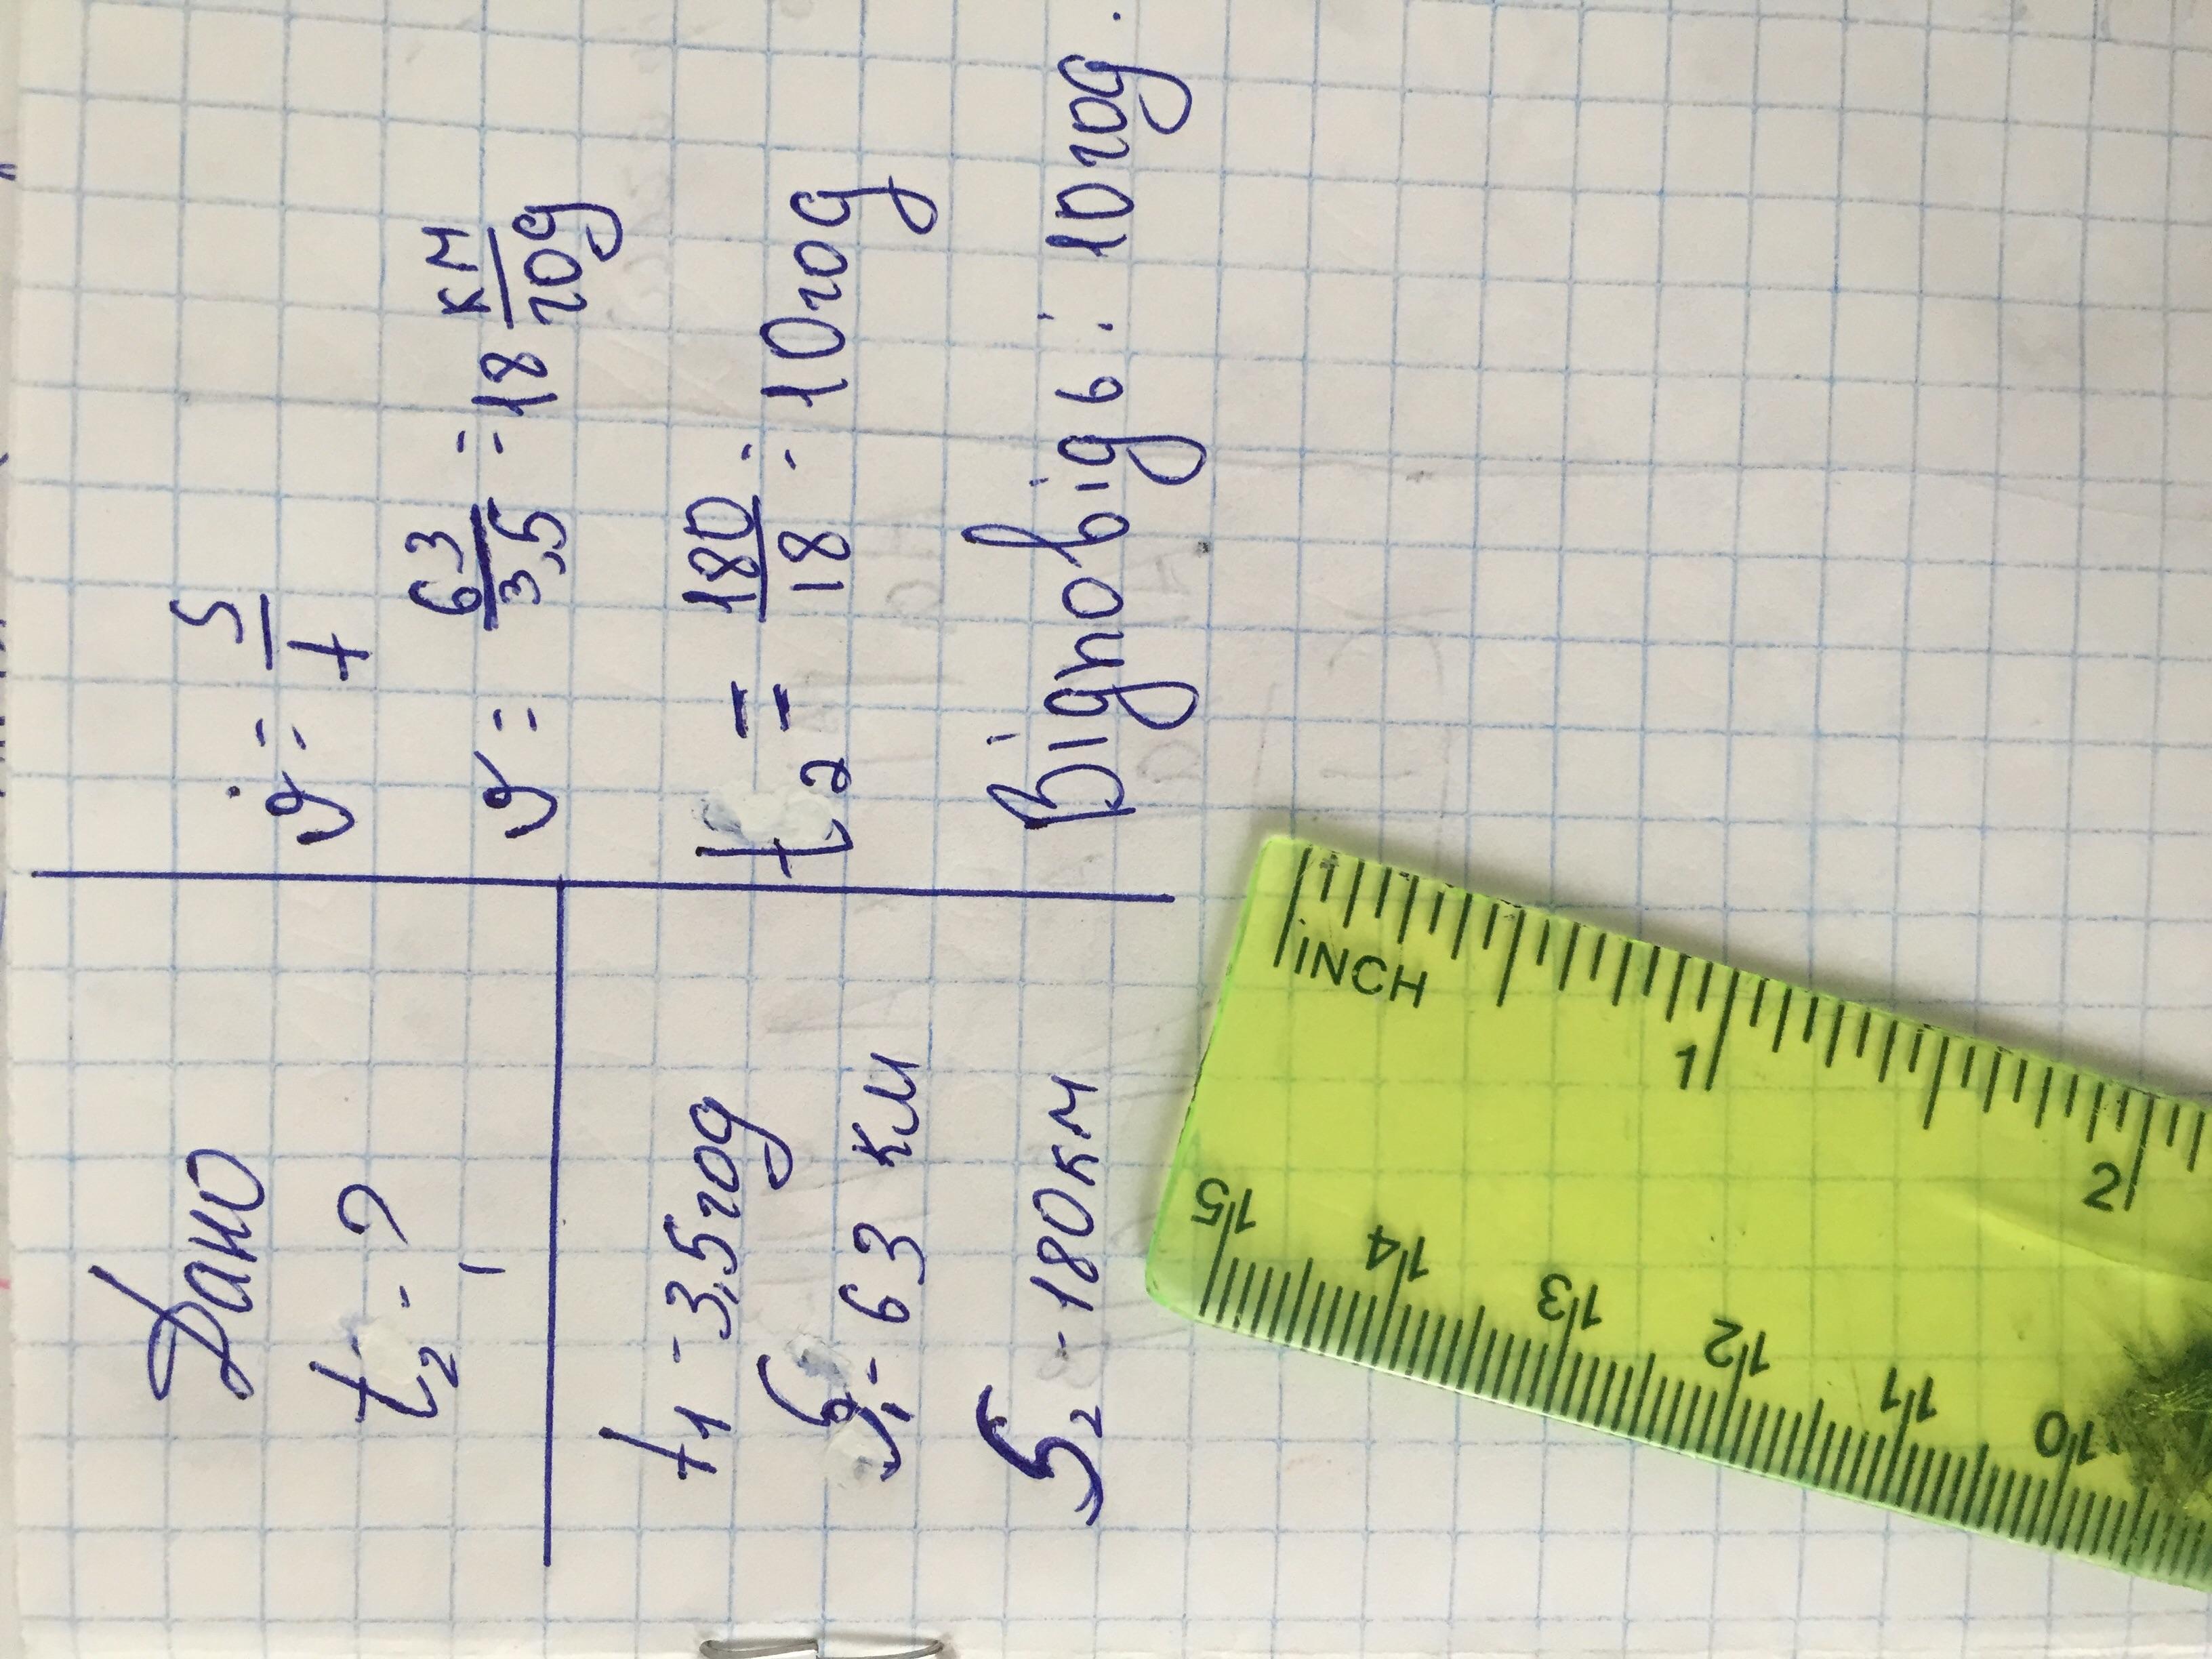 Дано
t₂ - ?
t₁ - 3,5 год
S₁ - 63 км
S₂ - 180 км
v = S/t
v = 63/3,5 = 18 км/год
t₂ = 180/18 = 10 год
Відповідь: 10 год.
INCH
1
2
15
14
13
12
11
10